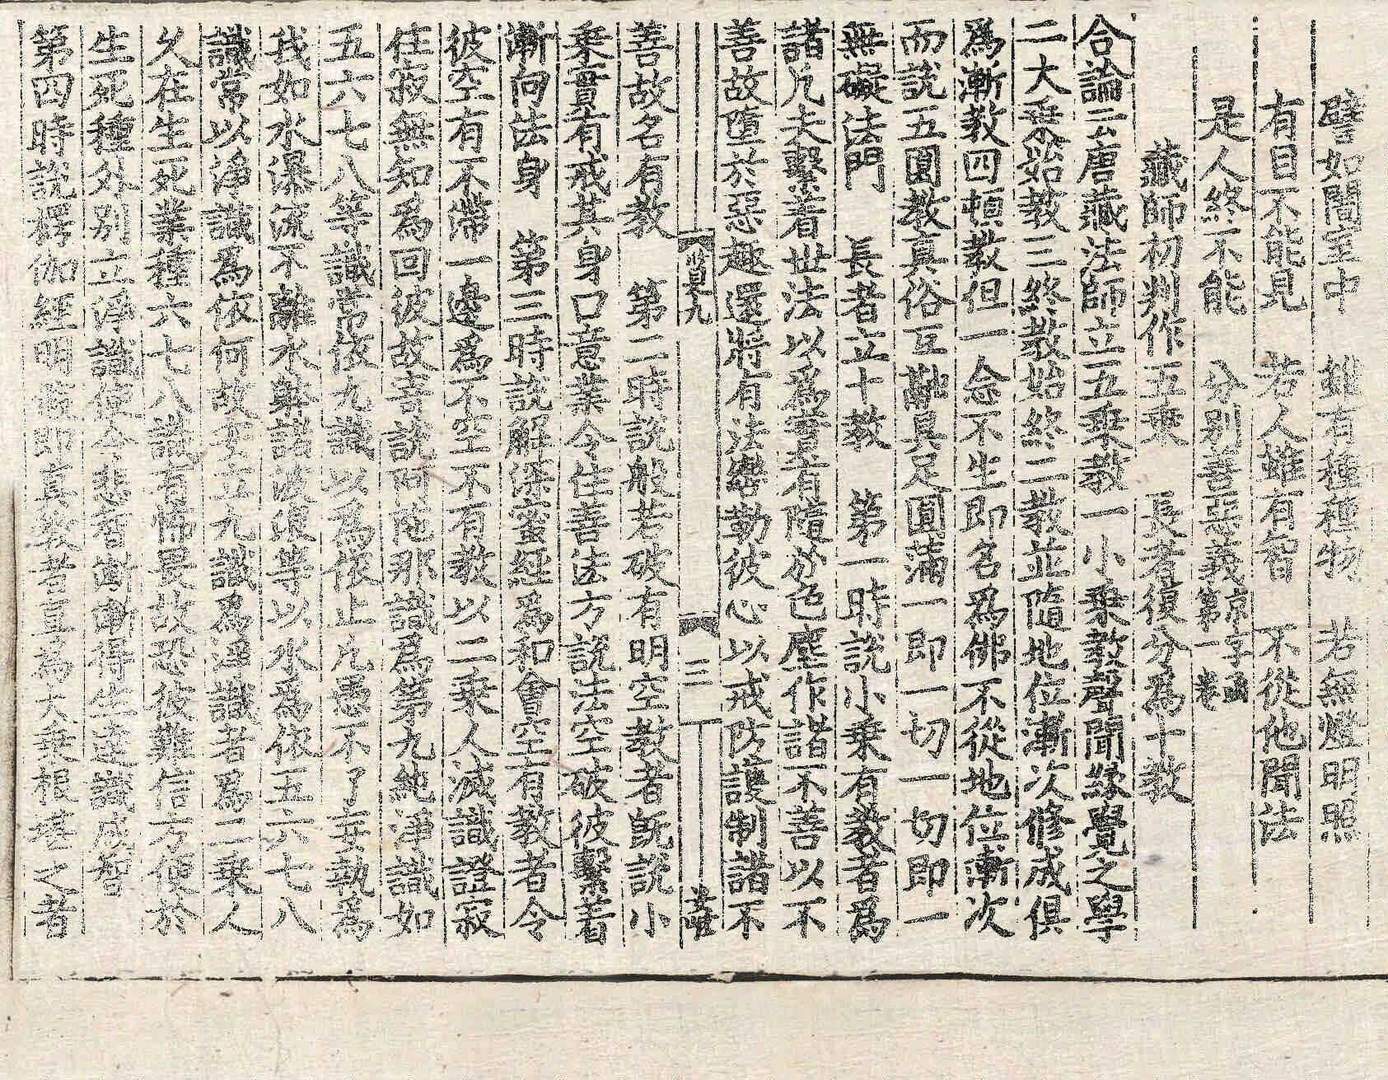 譬如闇室中　雖有種種物　若無燈明照
有目不能見　若人雖有智　不從他聞法
是人終不能　分別善惡義 京字函第一卷
藏師初判作五乘　長者復分爲十教
合論云唐藏法師立五乘教一小乘教聲聞緣覺之學
二大乘始教三終教始終二教並隨地位漸次修成俱
爲漸教四頓教但一念不生即名爲佛不從地位漸次
而說五圓教真俗互融具足圓滿一即一切一切即一
無礙法門　長者立十教　第一時說小乘有教者爲
諸凡夫繫着世法以爲實有隨於色塵作諸不善以不
善故墮於惡趣還將有法密勒彼心以戒防護制諸不
三
善故名有教　第二時說般若破有明空教者旣說小
乘實有戒其身口意業令住善法方說法空破彼繫着
漸向法身　第三時說解深蜜経爲和會空有教者令
彼空有不滯一邊爲不空不有教以二乘人滅識證寂
住寂無知爲回彼故喜說阿陁那識爲第九純淨識如
五六七八等識常依九識以爲依止凡愚不了妄執爲
我如水瀑流不離水躰諸波浪等以水爲依五六七八
識常以淨識爲依何故立九識爲淨識者爲二乘人
久在生死業種六七八識有怖畏故恐彼難信方便於
生死種外別立淨識使令悲智漸漸得生達識成智
第四時說楞伽経明假即真教者直爲大乘根堪之者